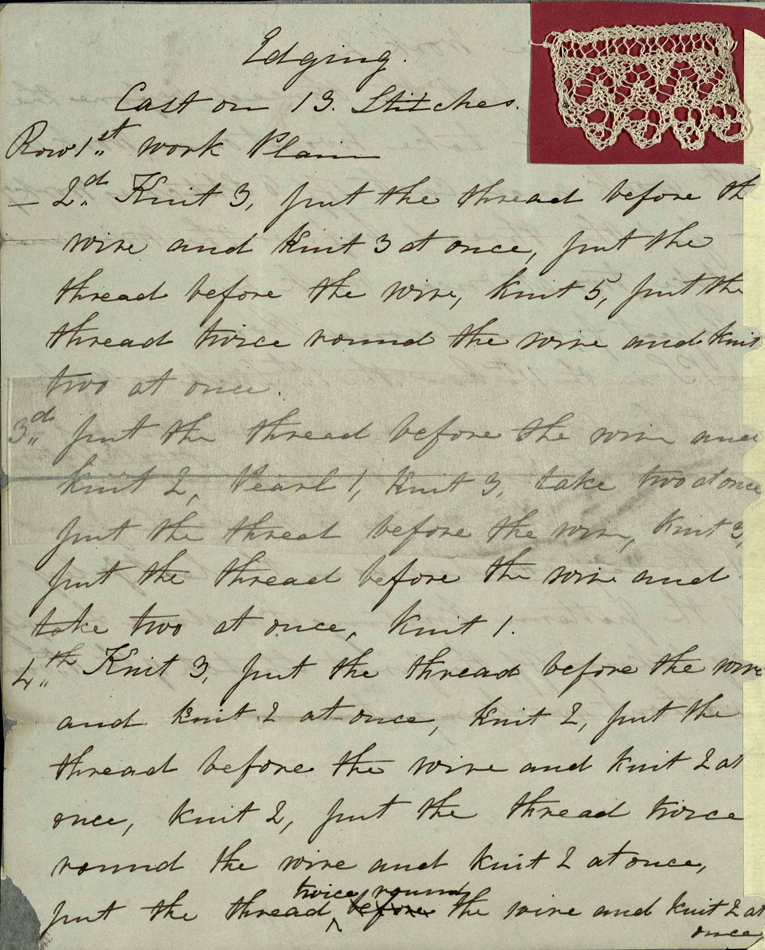 Edging.
Cast on 13. Stitches.
Row 1st work Plain
– 2d Knit 3, put the thread before th
wire and Knit 3 at once, put the
thread before the wire, knit 5, put the
thread twice round the wire and knit
two at once.
3d put the thread before the wire and
knit 2, Pearl 1, Knit 3, take two at once
put the thread before the wire, Knit 3,
put the thread before the wire and
take two at once, Knit 1.
4th Knit 3, put the thread before the wire
and knit 2 at once, knit 2, put the
thread before the wire and knit 2 at
once, knit 2, put the thread twice
round the wire and knit 2 at once,
twice round
put the thread ^ before the wire and knit 2 at
once